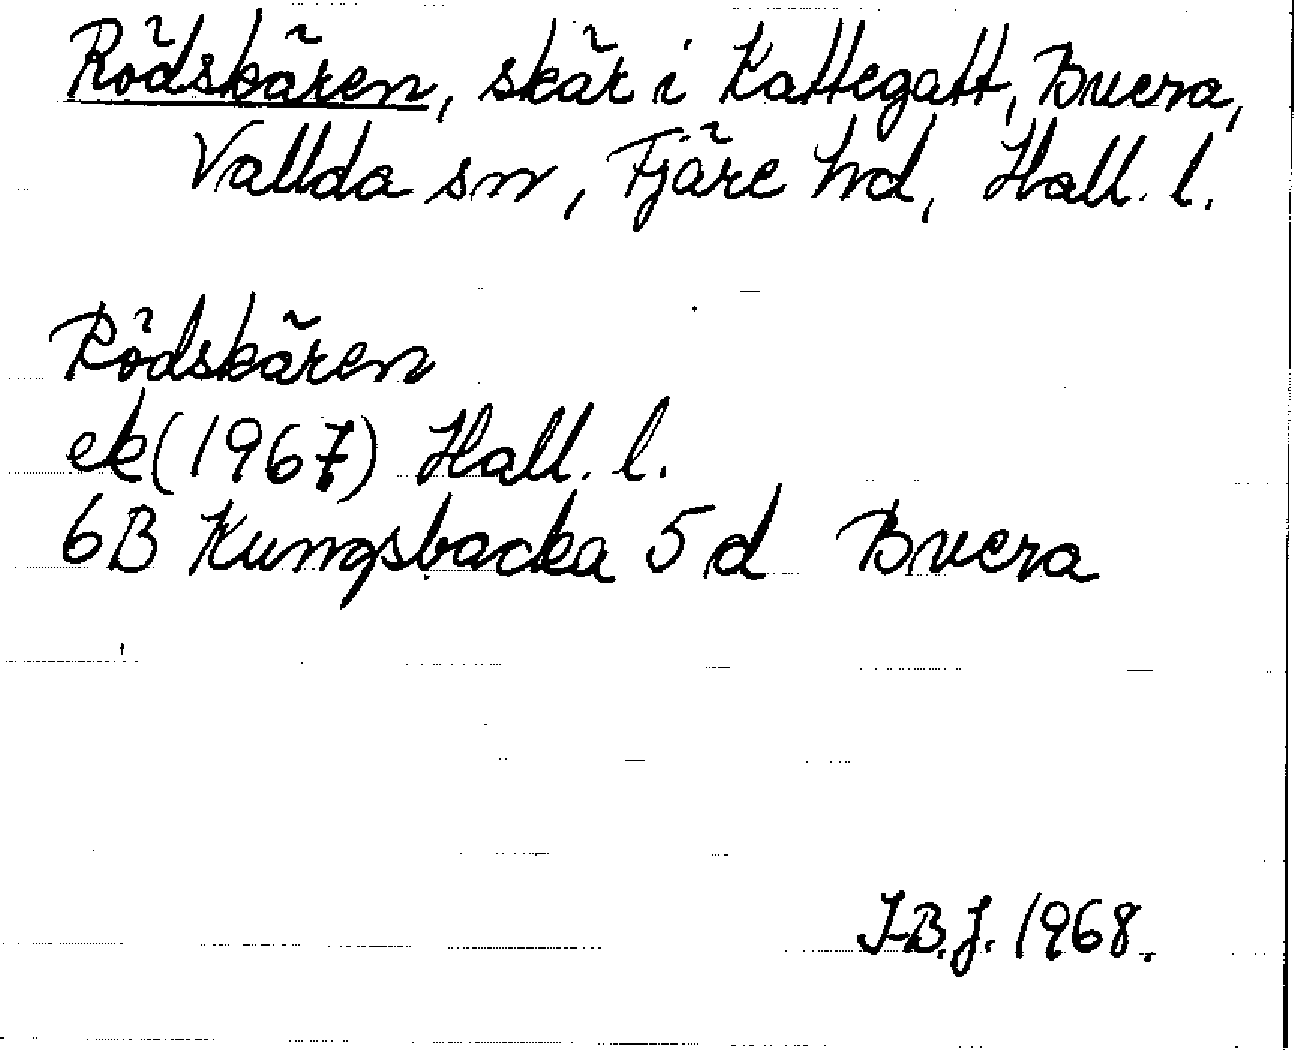 Rödskären, skär i Kattegatt, Buera,
Vallda sn, Fjäre hd, Hall. l.
Rödskären
ek (1967) Hall. l.
6B Kungsbacka 5d Buera
I-B.J. 1968.